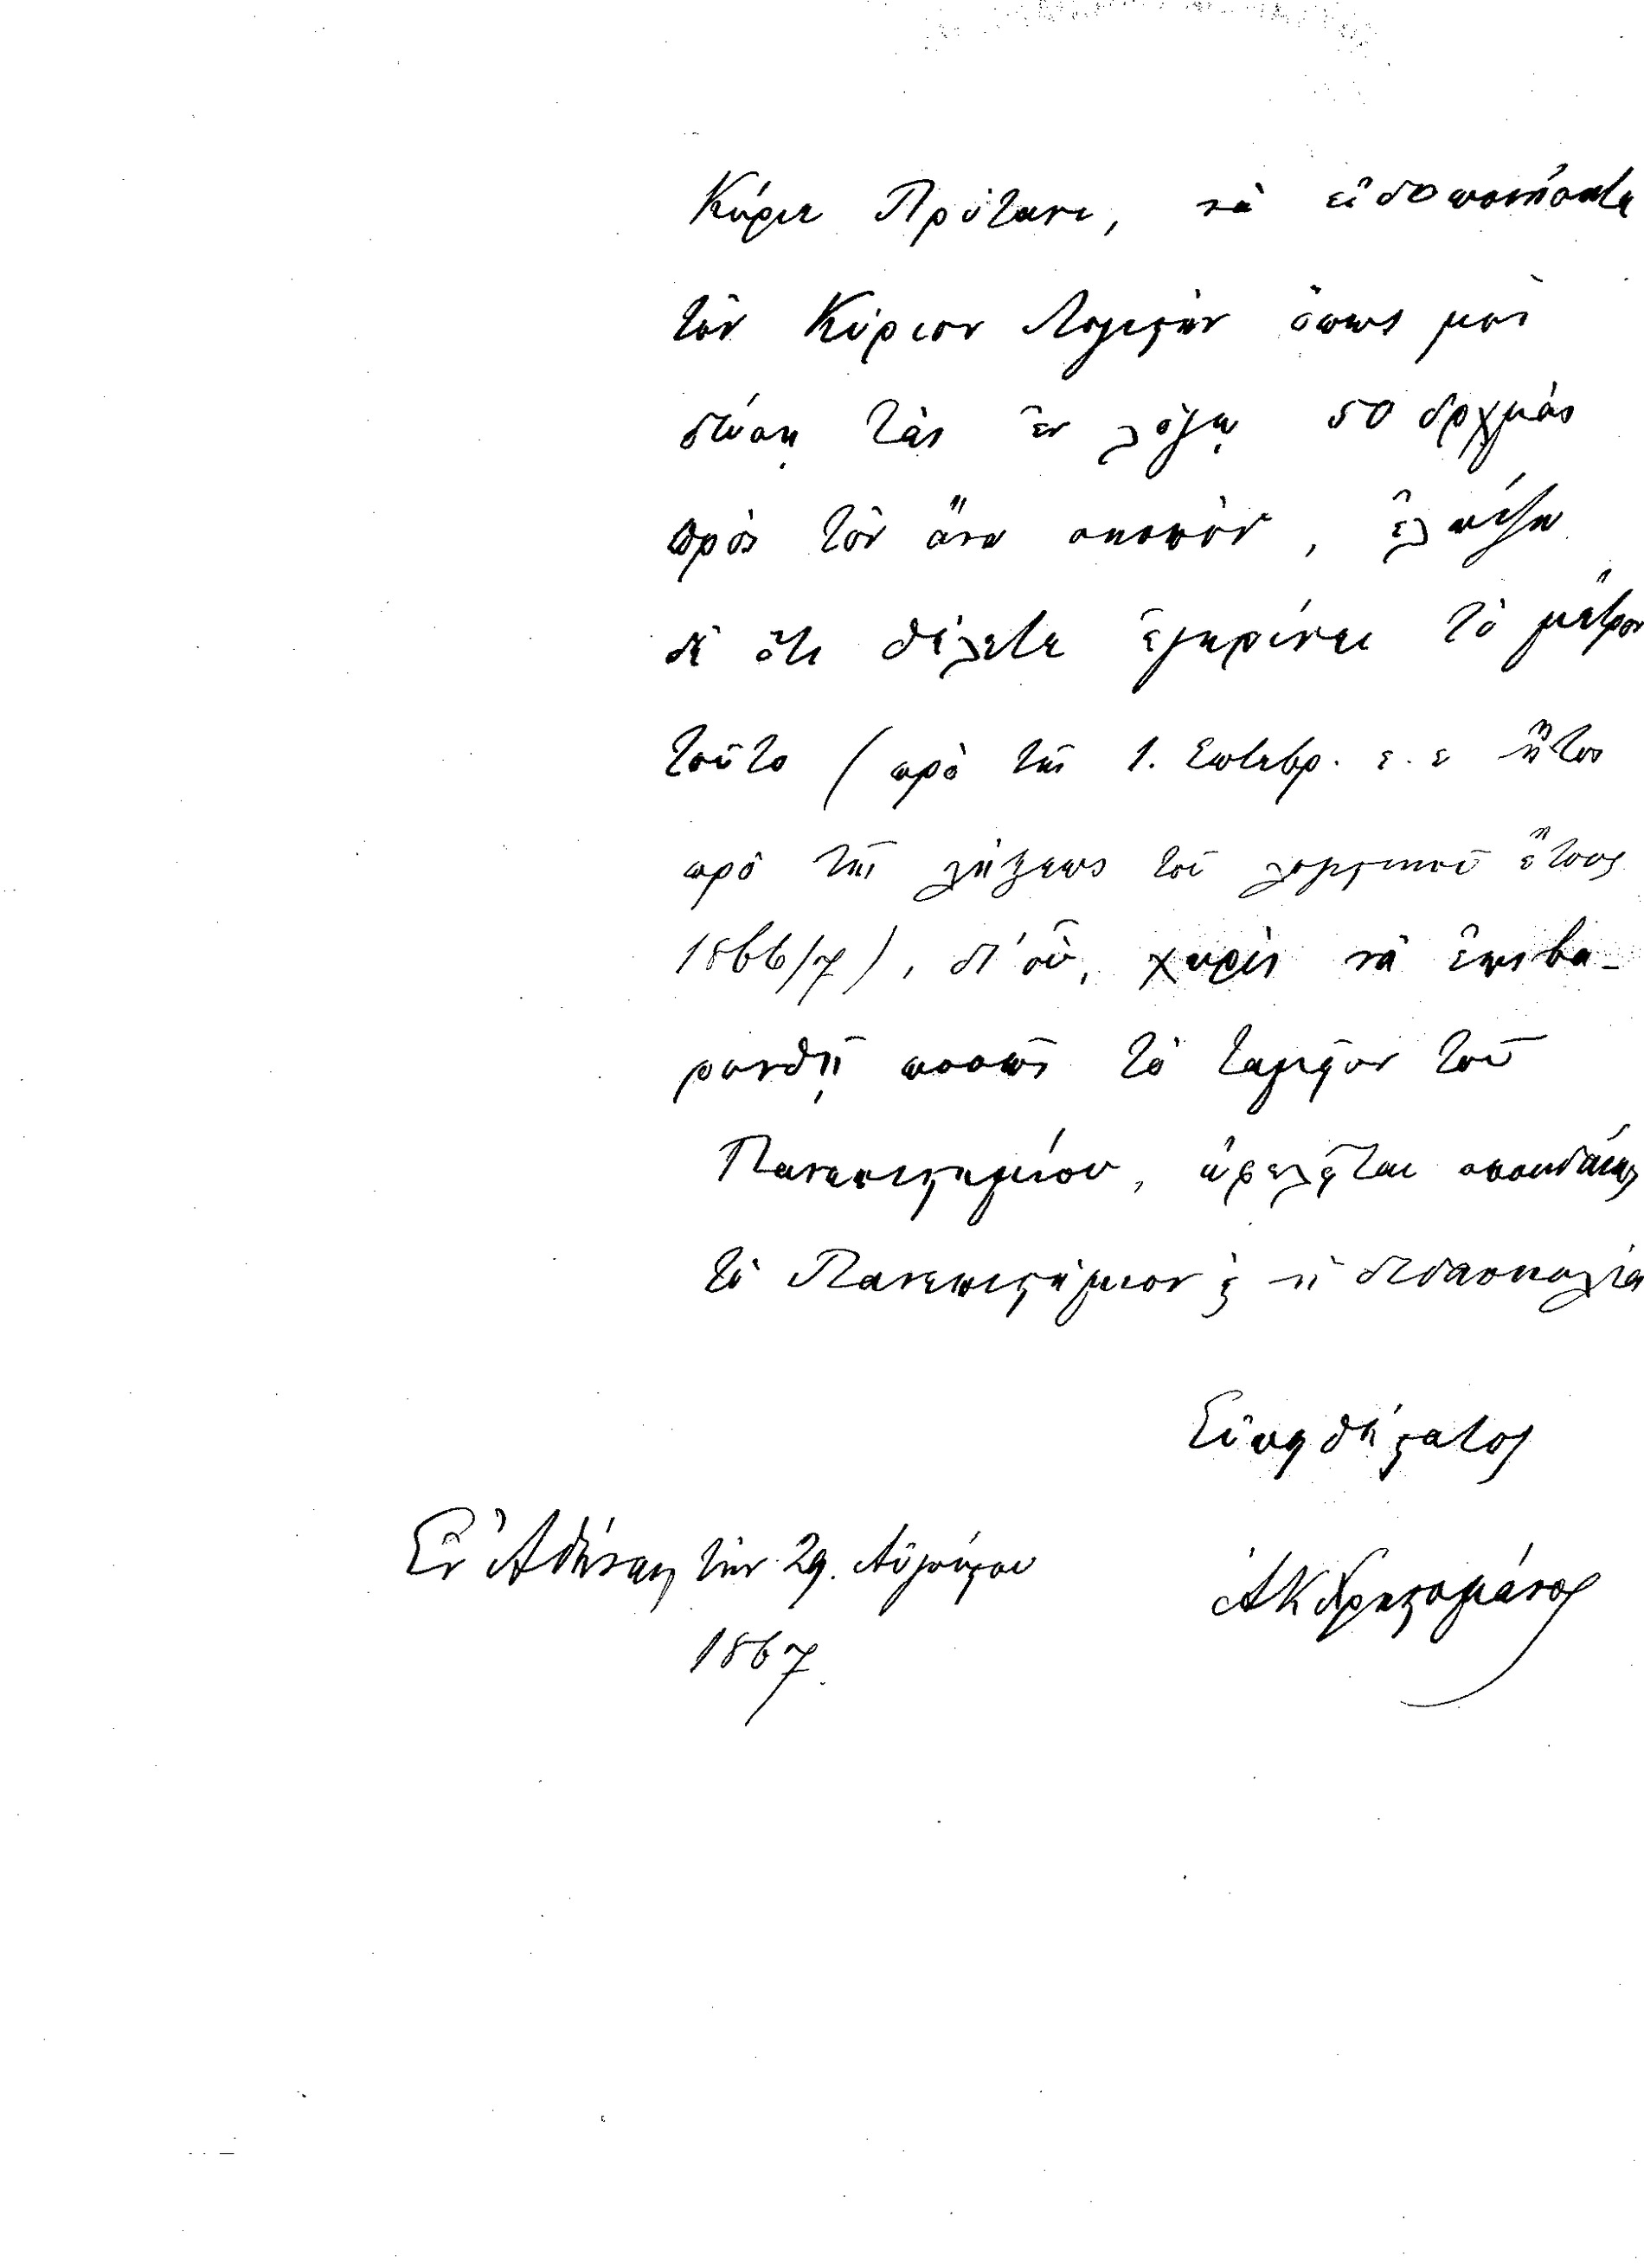 Κύριε Πρύτανι, νὰ εἰδοποιήσητε
τὸν Κύριον Λογιστὴν ὅπως μοὶ
δώσῃ τὰς ἐν λόγῳ 50 δρχμὰς
πρὸς τὸν ἄνω σκοπὸν, ἐλπίζω
δὲ ὅτι θέλετε ἐγκρίνει τὸ μέτρον
τοῦτο (πρὸ τῆς 1. Σεπτεβρ. ἐ. ἐ ἤτοι
πρὸ τῆς λήξεως τοῦ λογιστικοῦ ἔτους
1866/7), δι' οὗ, χωρὶς νὰ ἐπιβα-
ρυνθῇ ποσῶς τὸ ταμεῖον τοῦ
Πανεπιστημίου, ὠφελεῖται σπουδαίως
τὸ Πανεπιστήμιον καὶ ἡ διδασκαλία
Εὐπειθέστατος
Ἐν Ἀθήναις τὴν 29. Αὐγούστου
Α Κ Χρηστομάνος
1867.